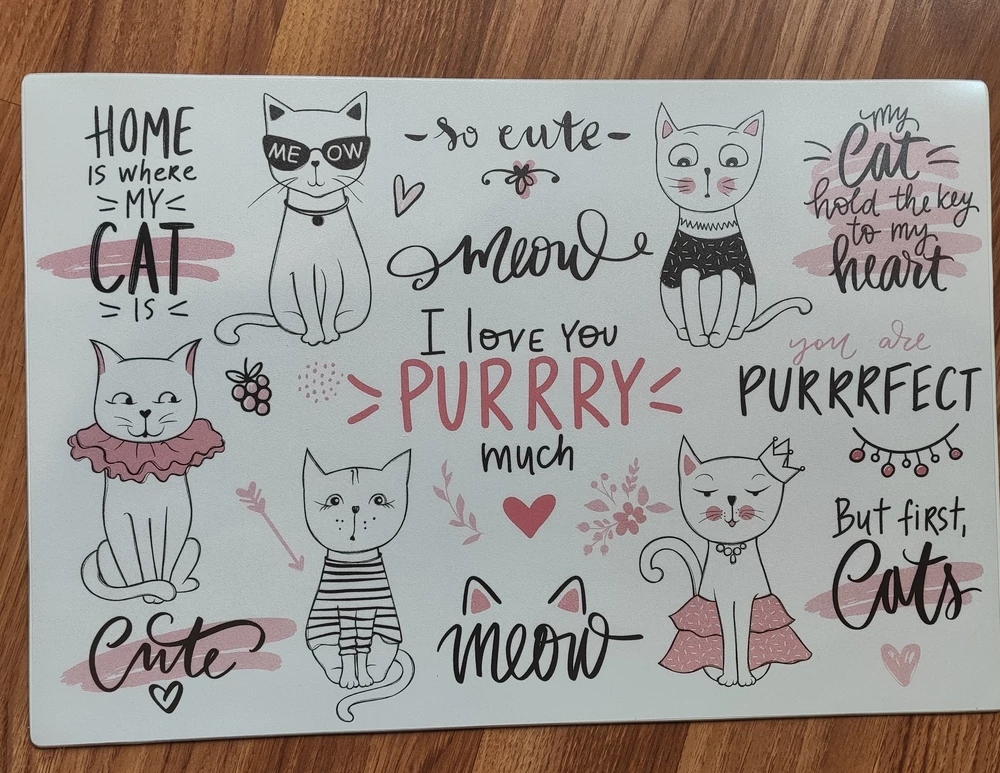 HOME
IS where
MY
CAT
IS
MEOW
-so cute-
meow
my
Cat
hold the key
to my
heart
I love you
PURRRY
much
you are
PURRRFECT
But first,
Cats
Cute
meow